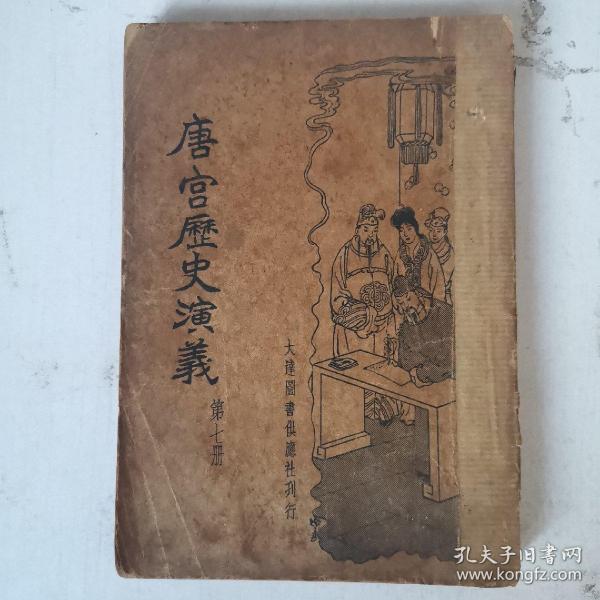 唐宫歷史演義
第七册
大達圖書供應社刋行
孔夫子旧書网
www.kongfz.com